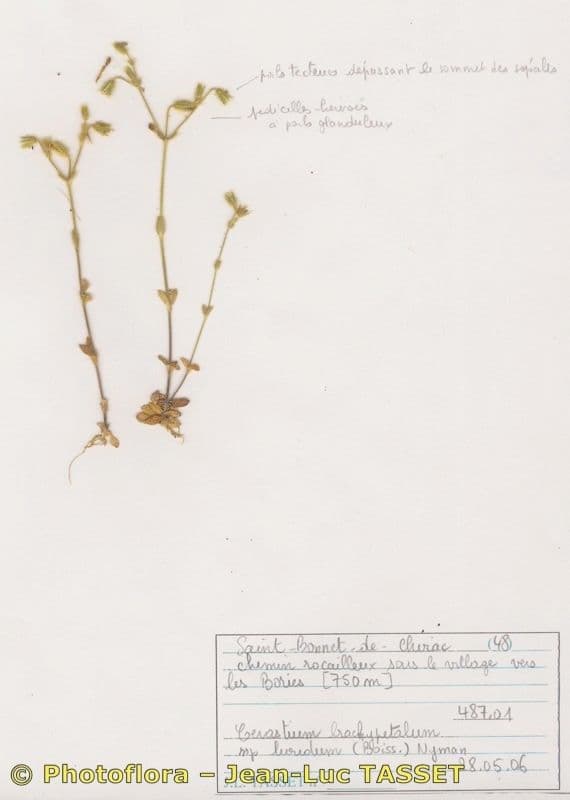 poils tecteurs dépassant le sommet des sépales
pédicelles hérissés
à poils glanduleux
Saint-Bonnet-de-Chirac (48)
chemin rocailleux sous le village vers
les Bories [750m]
487.01
Cerastium brachypetalum
ssp luridum (Boiss.) Nyman
28.05.06
© Photoflora – Jean-Luc TASSET
J.L. TASSET